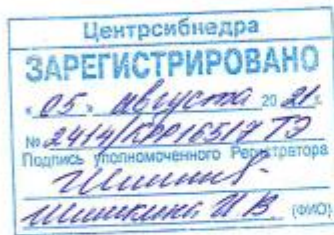 Центрсибнедра
ЗАРЕГИСТРИРОВАНО
« 05 » августа 20 21 г.
№ 2414/КРР16517 ТЭ
Подпись уполномоченного Регистратора
Шишкина И В (ФИО)